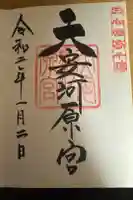 天安河原宮
令和二年一月二日